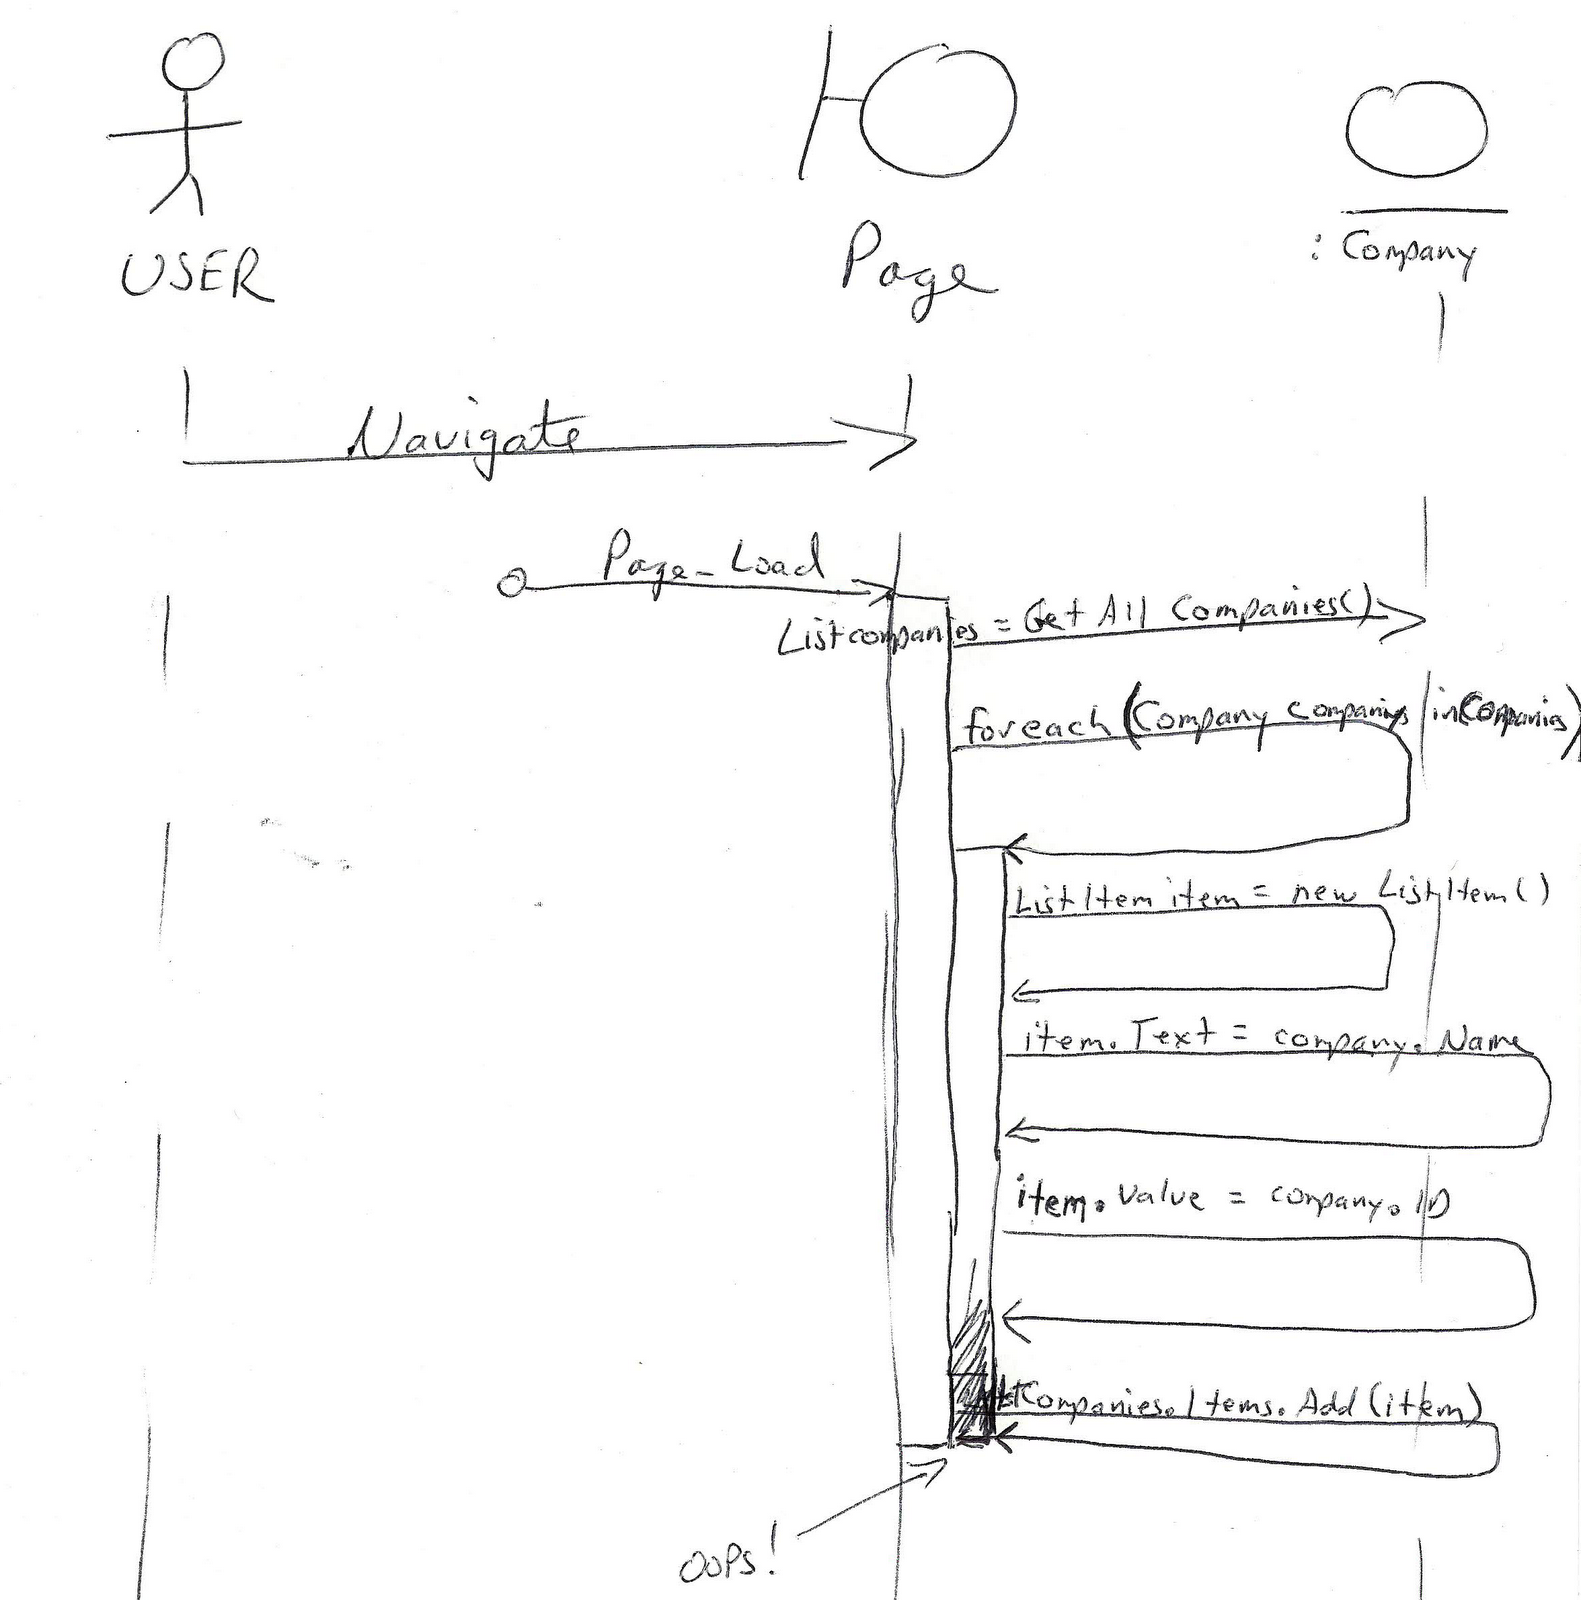 USER
Page
: Company
Navigate
Page_Load
List companies = Get All Companies()
foreach (Company companies in Companies)
ListItem item = new ListItem()
item.Text = company.Name
item.Value = company.ID
lstCompanies.Items.Add(item)
OOPS!